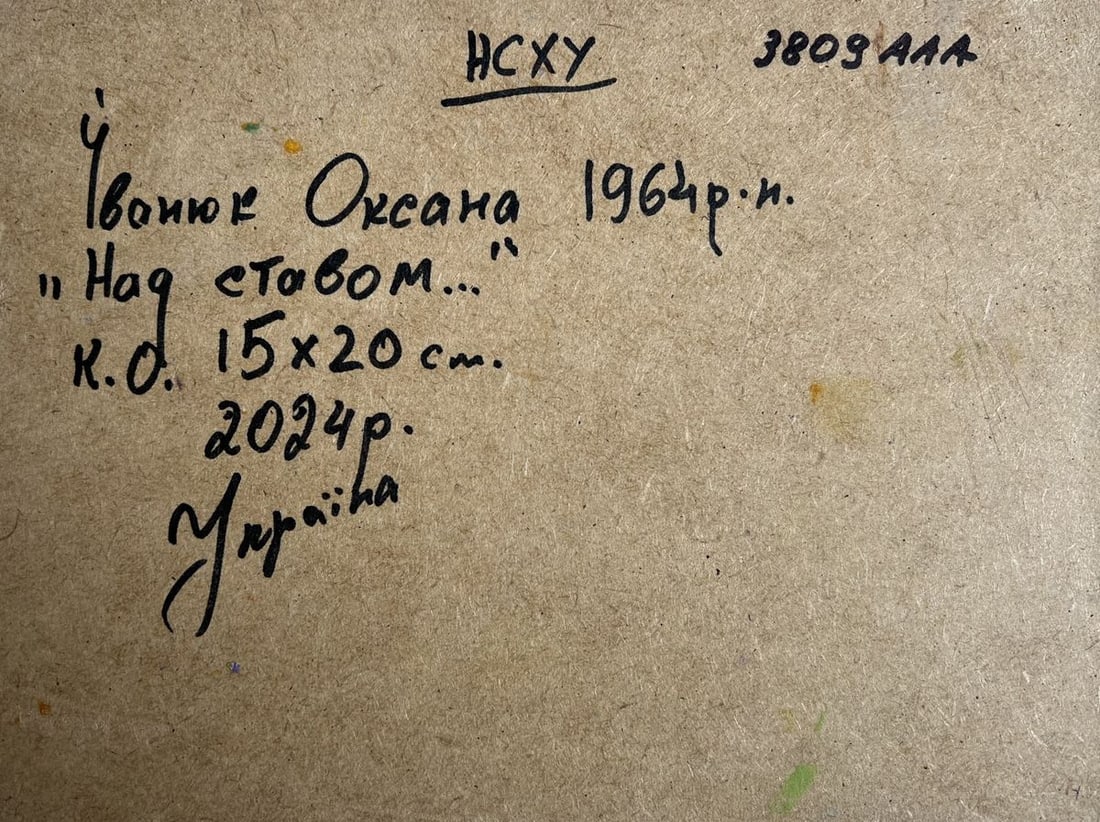 НСХУ 3809 ААА
Іванюк Оксана 1964р.н.
"Над ставом..."
к.о. 15х20 см.
2024р.
Україна